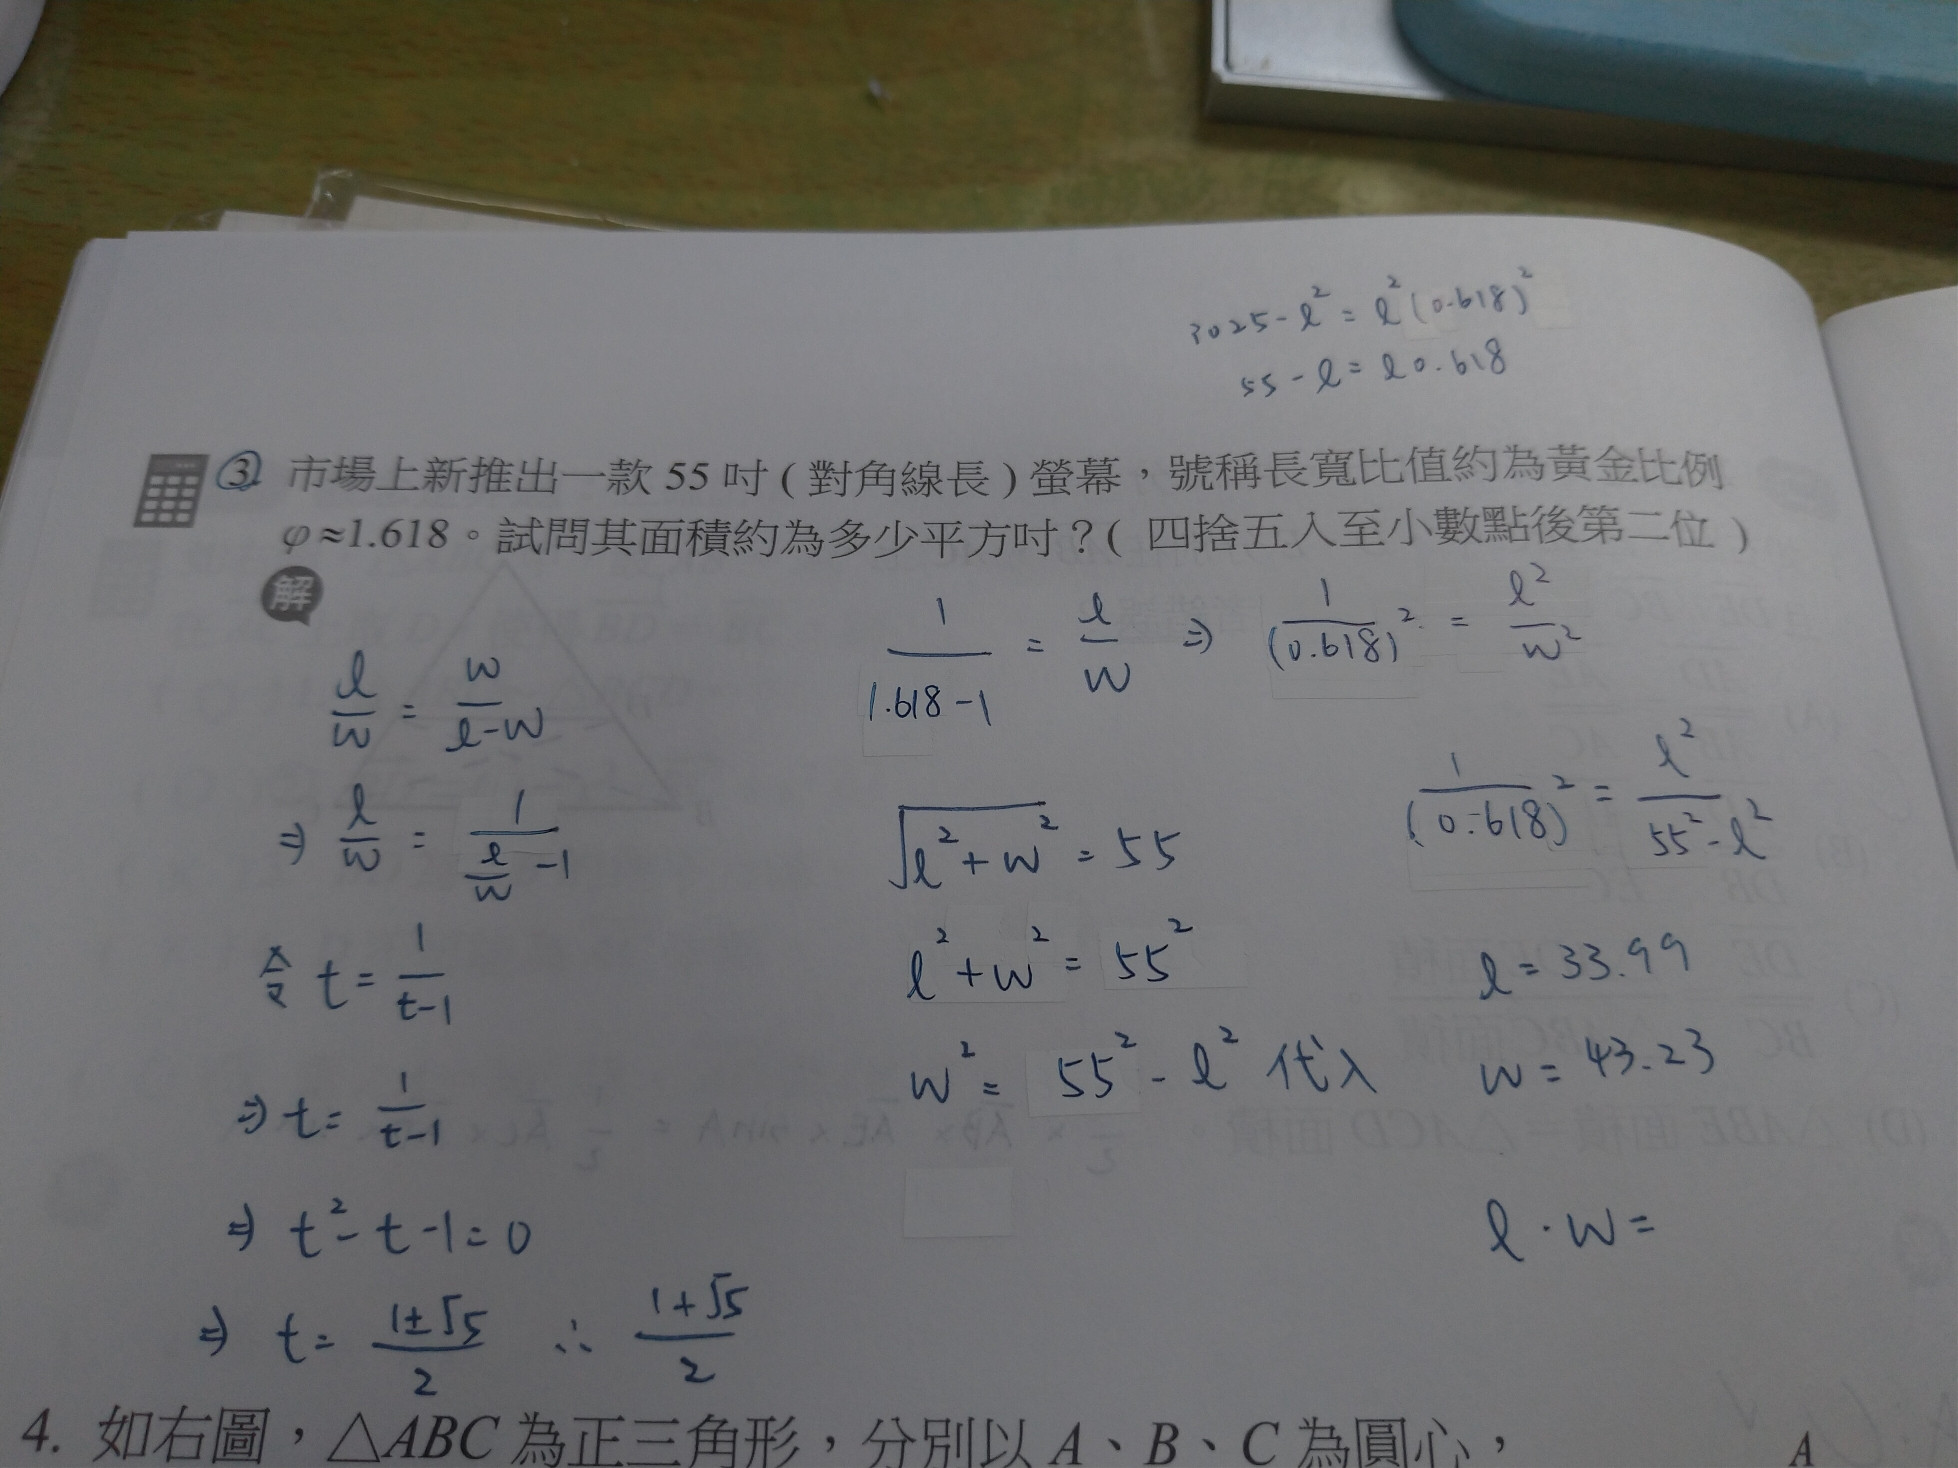 3025-l²=l²(0.618)²
55-l=l0.618
3 市場上新推出一款 55 吋 ( 對角線長 ) 螢幕，號稱長寬比值約為黃金比例
φ≈1.618。試問其面積約為多少平方吋？( 四捨五入至小數點後第二位 )
解
l/w = w/(l-w)
⇒ l/w = 1/(l/w -1)
令 t= 1/(t-1)
⇒ t= 1/(t-1)
⇒ t²-t-1=0
⇒ t= (1±√5)/2 ∴ (1+√5)/2
1/(1.618-1) = l/w ⇒ 1/(0.618)² = l²/w²
√(l²+w²) = 55
l²+w²=55²
w²= 55²-l² 代入
1/(0.618)² = l²/(55²-l²)
l=33.99
w=43.23
l·w=
4. 如右圖，△ABC 為正三角形，分別以 A、B、C 為圓心，
A